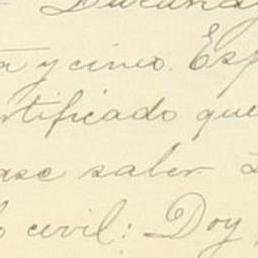 y cinco. Esp
rtificado que
ase saber
civil: Doy